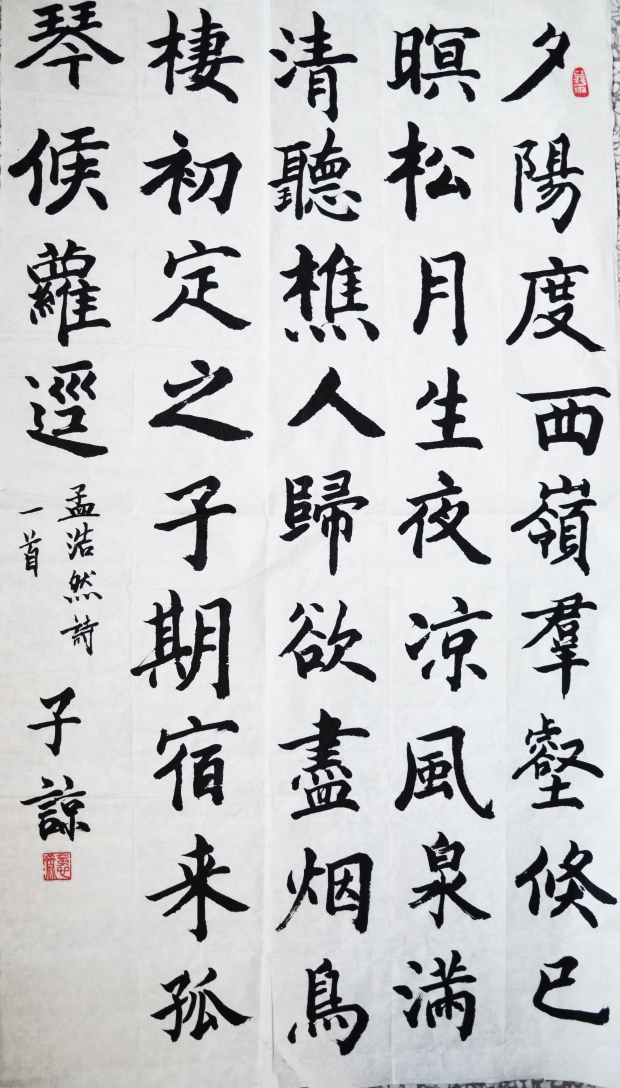 夕陽度西嶺羣壑倏已
暝松月生夜凉風泉滿
清聽樵人歸欲盡烟鳥
棲初定之子期宿来孤
琴候蘿逕
孟浩然詩
一首
子諒